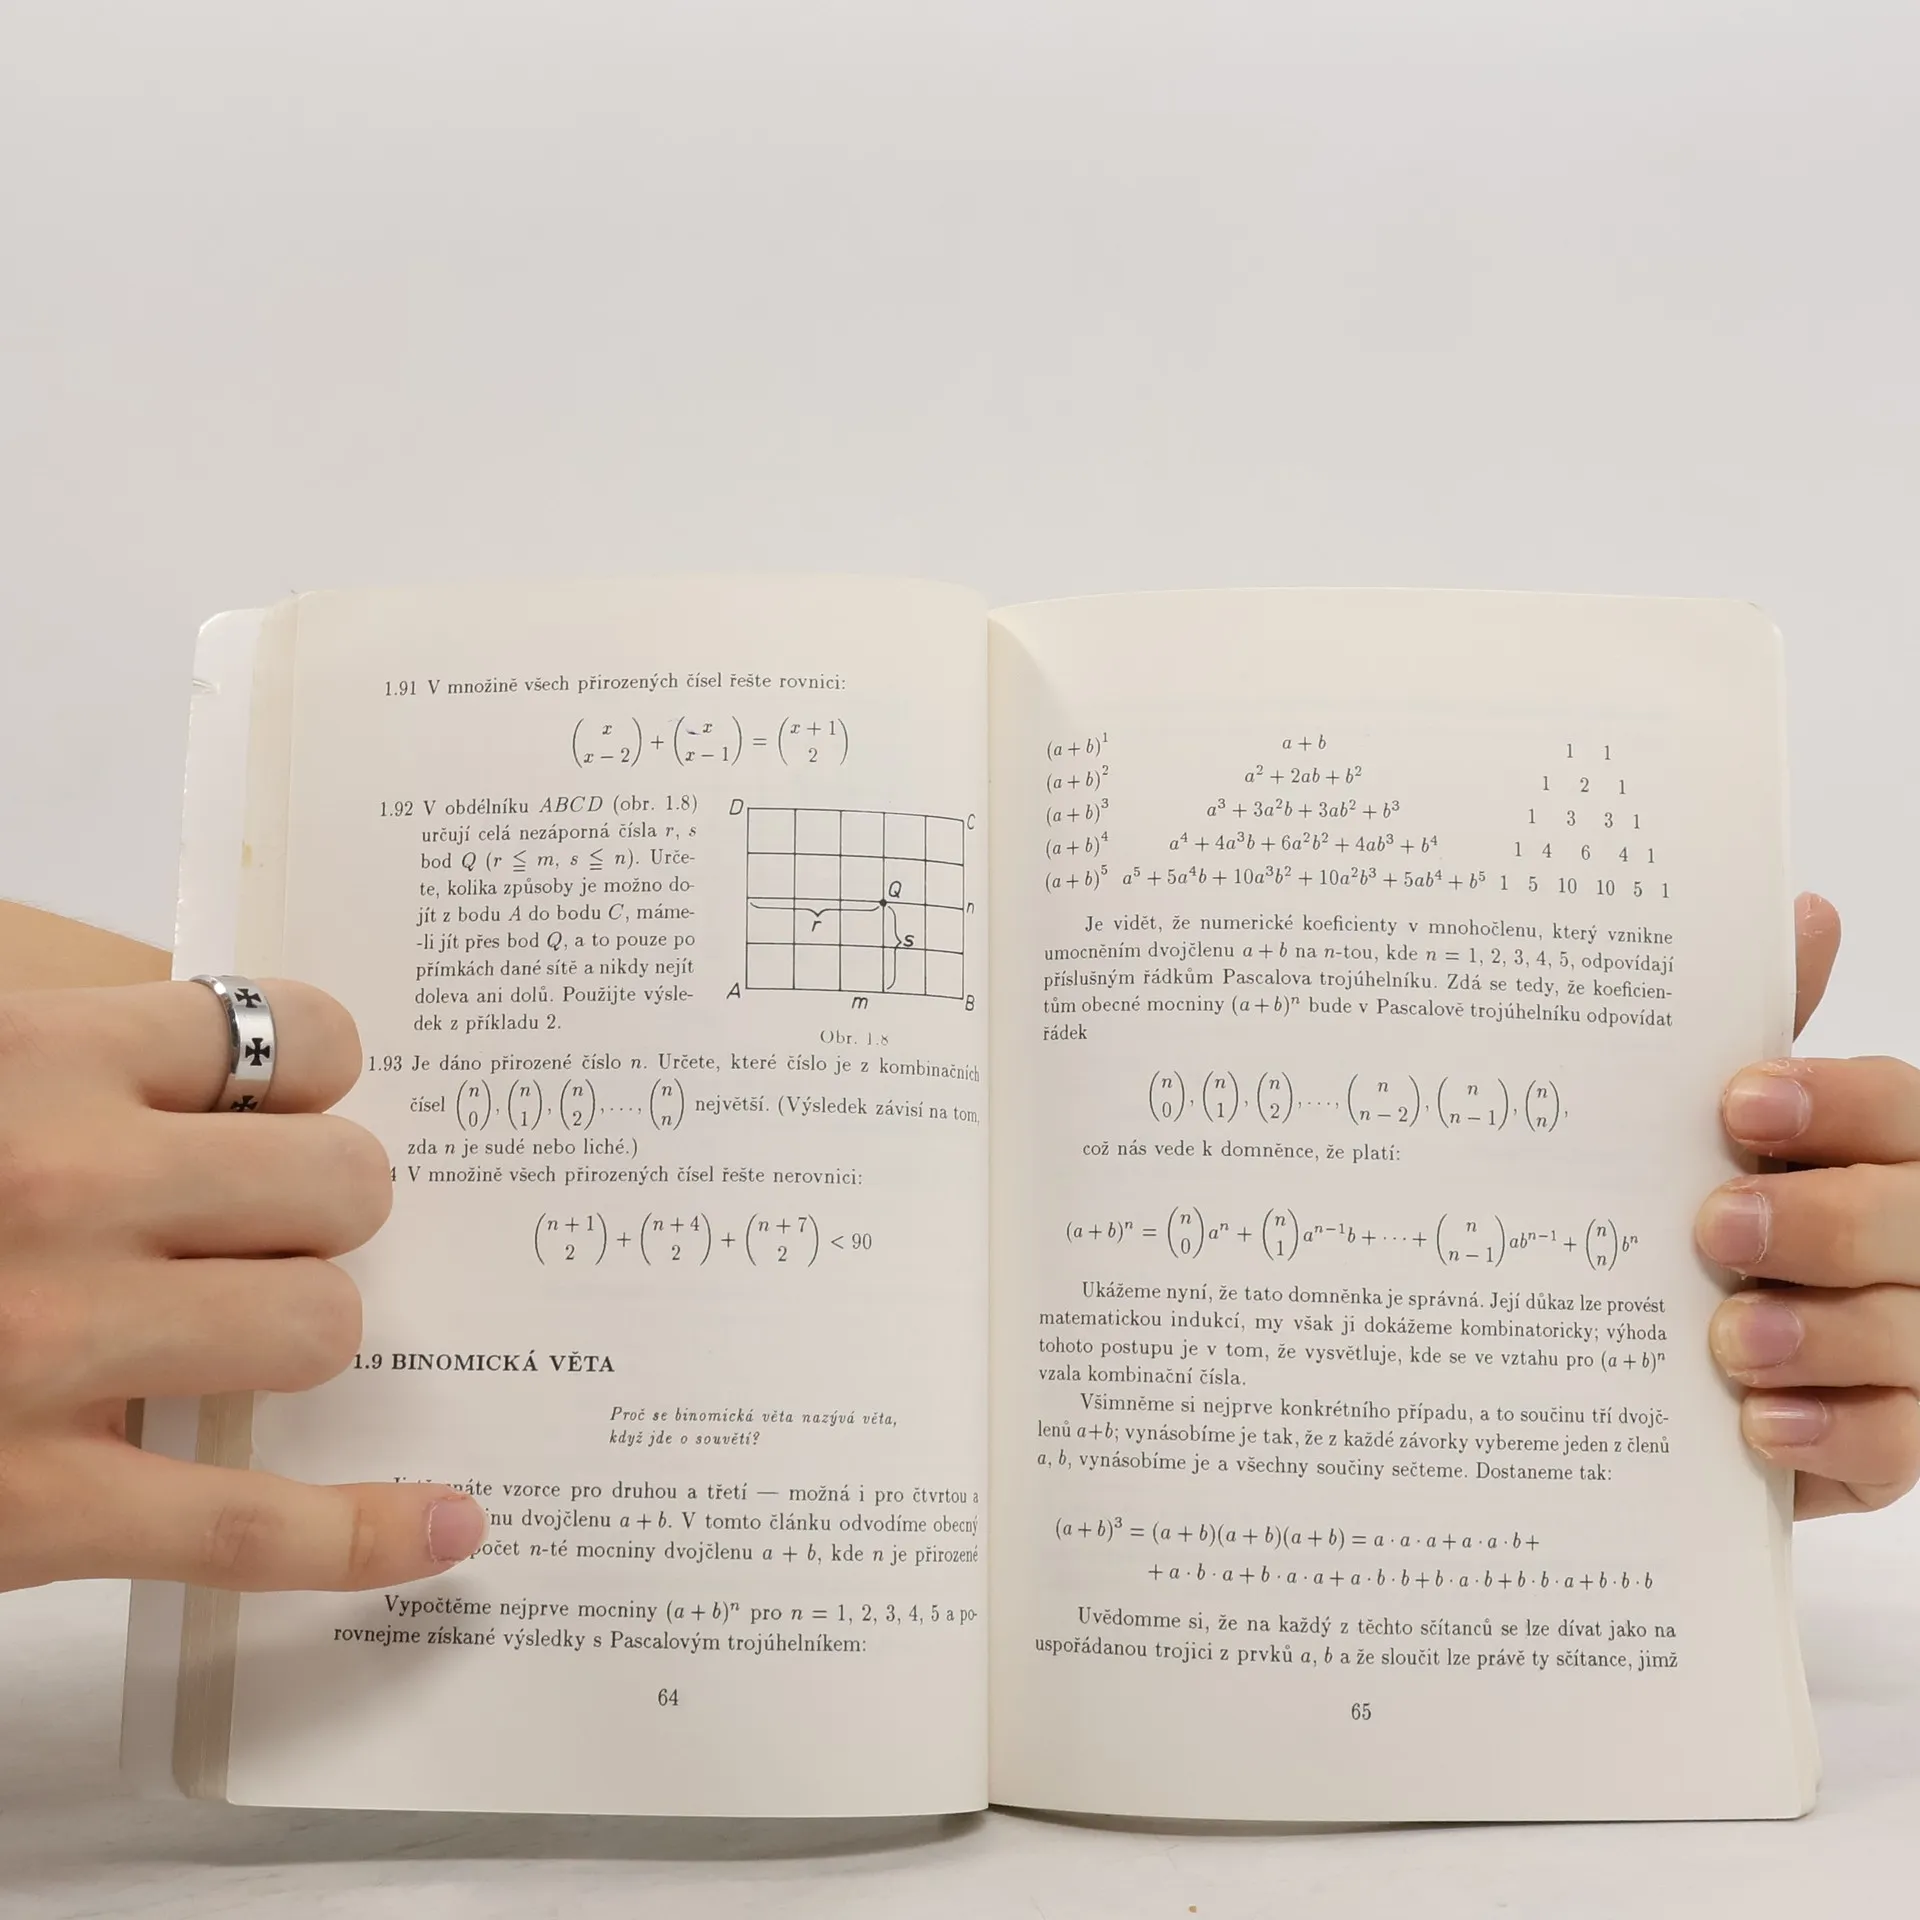 1.91 V množině všech přirozených čísel řešte rovnici:
(x x − 2) + (x x − 1) = (x + 1 2)
1.92 V obdélníku ABCD (obr. 1.8)
určují celá nezáporná čísla r, s
bod Q (r ≦ m, s ≦ n). Urče-
te, kolika způsoby je možno do-
jít z bodu A do bodu C, máme-
-li jít přes bod Q, a to pouze po
přímkách dané sítě a nikdy nejít
doleva ani dolů. Použijte výsle-
dek z příkladu 2.
D
C
Q
n
r
s
A
m
B
Obr. 1.8
1.93 Je dáno přirozené číslo n. Určete, které číslo je z kombinačních
čísel (n 0), (n 1), (n 2), ..., (n n) největší. (Výsledek závisí na tom,
zda n je sudé nebo liché.)
V množině všech přirozených čísel řešte nerovnici:
(n + 1 2) + (n + 4 2) + (n + 7 2) < 90
1.9 BINOMICKÁ VĚTA
Proč se binomická věta nazývá věta,
když jde o souvětí?
vzorce pro druhou a třetí — možná i pro čtvrtou a
dvojčlenu a + b. V tomto článku odvodíme obecný
n-té mocniny dvojčlenu a + b, kde n je přirozené
Vypočtěme nejprve mocniny (a + b)ⁿ pro n = 1, 2, 3, 4, 5 a po-
rovnejme získané výsledky s Pascalovým trojúhelníkem:
64
(a + b)¹ a + b 1 1
(a + b)² a² + 2ab + b² 1 2 1
(a + b)³ a³ + 3a²b + 3ab² + b³ 1 3 3 1
(a + b)⁴ a⁴ + 4a³b + 6a²b² + 4ab³ + b⁴ 1 4 6 4 1
(a + b)⁵ a⁵ + 5a⁴b + 10a³b² + 10a²b³ + 5ab⁴ + b⁵ 1 5 10 10 5 1
Je vidět, že numerické koeficienty v mnohočlenu, který vznikne
umocněním dvojčlenu a + b na n-tou, kde n = 1, 2, 3, 4, 5, odpovídají
příslušným řádkům Pascalova trojúhelníku. Zdá se tedy, že koeficien-
tům obecné mocniny (a + b)ⁿ bude v Pascalově trojúhelníku odpovídat
řádek
(n 0), (n 1), (n 2), ..., (n n − 2), (n n − 1), (n n),
což nás vede k domněnce, že platí:
(a + b)ⁿ = (n 0)aⁿ + (n 1)aⁿ⁻¹b + ··· + (n n − 1)abⁿ⁻¹ + (n n)bⁿ
Ukážeme nyní, že tato domněnka je správná. Její důkaz lze provést
matematickou indukcí, my však ji dokážeme kombinatoricky; výhoda
tohoto postupu je v tom, že vysvětluje, kde se ve vztahu pro (a + b)ⁿ
vzala kombinační čísla.
Všimněme si nejprve konkrétního případu, a to součinu tří dvojč-
lenů a+b; vynásobíme je tak, že z každé závorky vybereme jeden z členů
a, b, vynásobíme je a všechny součiny sečteme. Dostaneme tak:
(a + b)³ = (a + b)(a + b)(a + b) = a · a · a + a · a · b +
+ a · b · a + b · a · a + a · b · b + b · a · b + b · b · a + b · b · b
Uvědomme si, že na každý z těchto sčítanců se lze dívat jako na
uspořádanou trojici z prvků a, b a že sloučit lze právě ty sčítance, jimž
65